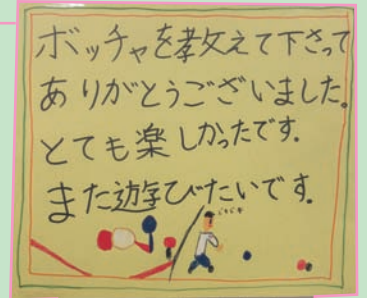 ボッチャを教えて下さって
ありがとうございました。
とても楽しかったです。
また遊びたいです。